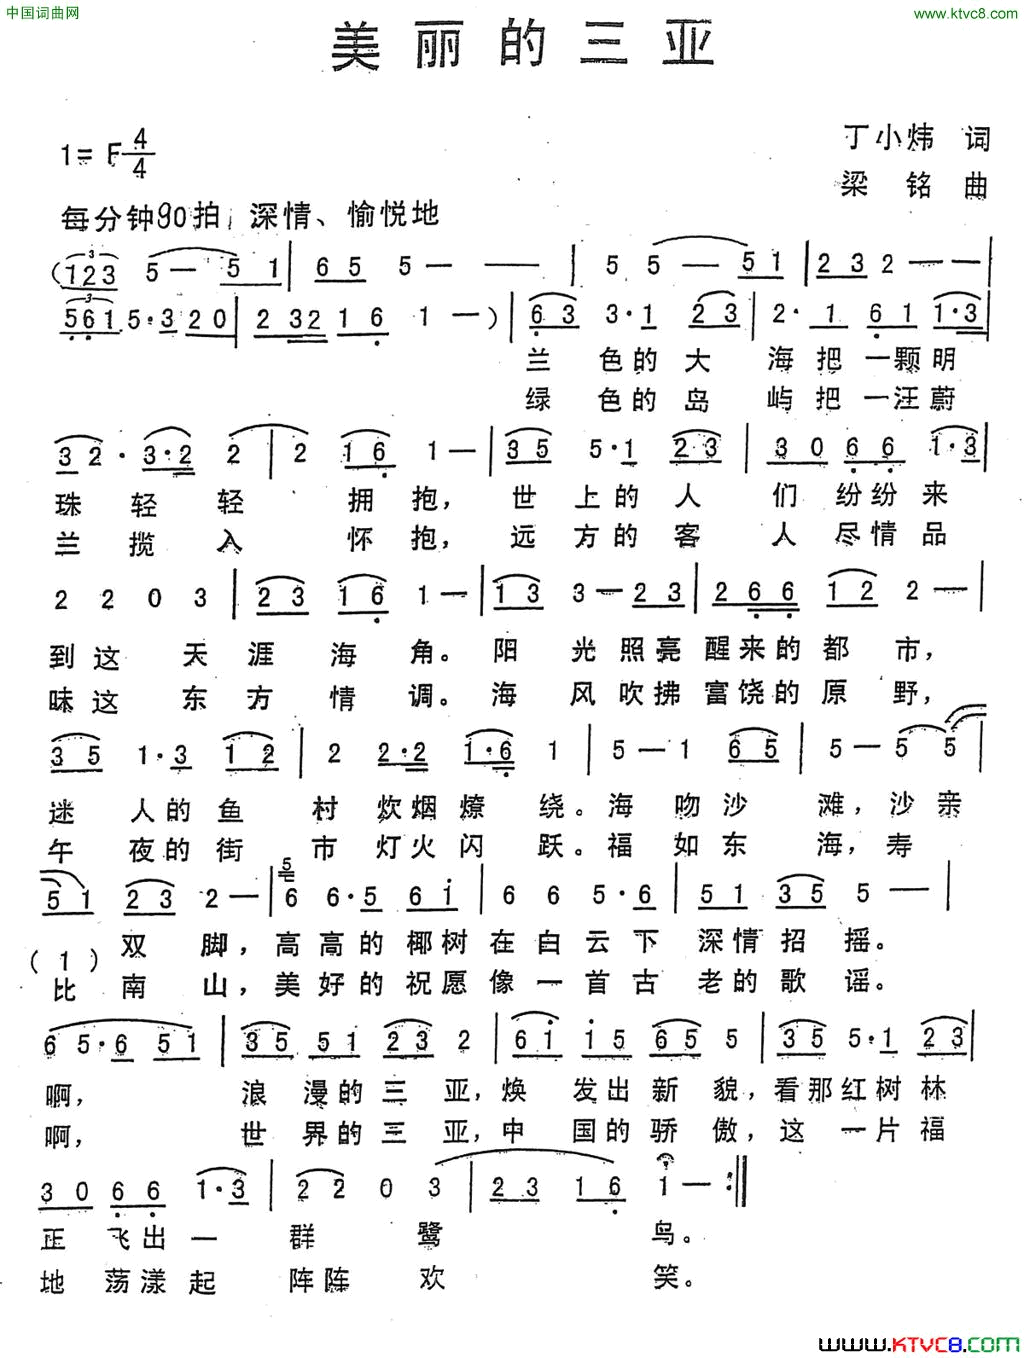 中国词曲网
www.ktvc8.com
美丽的三亚
1=F 4/4
丁小炜 词
梁 铭 曲
每分钟90拍 深情、愉悦地
(123 5— 51 | 65 5— — | 5 5— 51 | 23 2— —
561 5·3 20 | 2 32 16 1—) | 63 3·1 23 | 2·1 61 1·3
兰 色的大 海把一颗明
绿 色的岛 屿把一汪蔚
32· 3·2 2 | 2 16 1— | 35 5·1 23 | 30 66 1·3
珠 轻 轻 拥 抱, 世 上的人 们 纷纷来
兰 揽 入 怀 抱, 远 方的客 人 尽情品
2 2 0 3 | 23 16 1— | 13 3—23 | 266 12 2—
到这 天 涯 海 角。阳 光照亮醒来的都 市,
味这 东 方 情 调。海 风吹拂富饶的原 野,
35 1·3 12 | 2 2·2 1·6 1 | 5—1 65 | 5—5 5
迷 人的鱼 村 炊烟燎 绕。海吻沙 滩,沙亲
午 夜的街 市 灯火闪 跃。福如东 海,寿
51 23 2— | 5 6 6·5 6i | 6 6 5·6 | 51 35 5—
双 脚,高高的椰树在白云下 深情招 摇。
(1)
比 南 山,美好的祝愿像一首古 老的歌 谣。
6 5·6 51 | 35 51 23 2 | 6i i5 65 5 | 35 5·1 23
啊, 浪 漫的三 亚,焕 发出新 貌,看那红树林
啊, 世 界的三 亚,中 国的骄 傲,这 一片福
30 66 1·3 | 22 0 3 | 23 16 1— :||
正 飞出一 群 鹭 鸟。
地 荡漾起 阵阵 欢 笑。
www.KTVC8.com